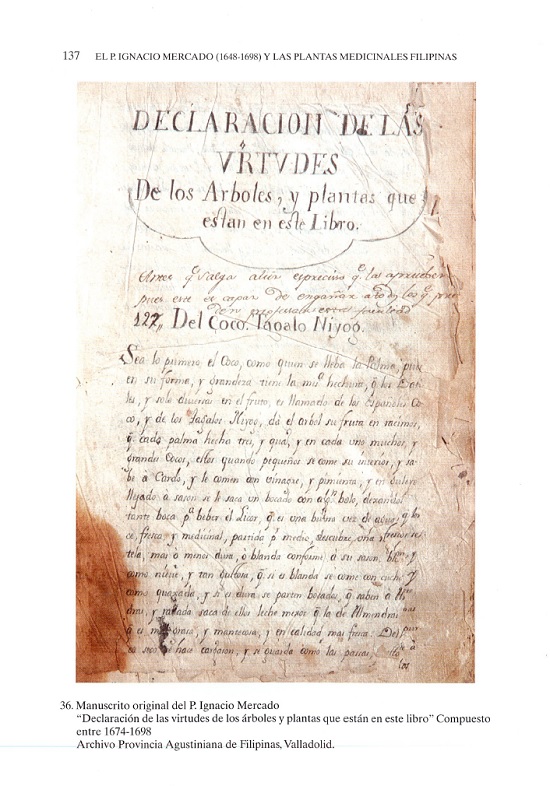 137 EL P. IGNACIO MERCADO (1648-1698) Y LAS PLANTAS MEDICINALES FILIPINAS
DECLARACION DE LAS
VIRTVDES
De los Arboles, y plantas que
estan en este Libro.
Antes q. salga a es preciso q. las aprueben
pues es capaz de engañar a todos los q.
127,, Del Coco. Tagalo Niyog.
Sea lo primero el Coco, como quien se lleba la Palma, pues
en su forma, y grandeza tiene la mis.ª hechura, q. los Dati
les, y solo en el fruto, es llamado de los Españoles Co
co, y de los Tagalos Niyog, dà el arbol su fruta en racimos,
q. cada palma hecha tres, y quatro, y en cada uno muchos, y
grandes Cocos, estos quando pequeños se come su interior, y sa
be à Cardo, y le comen con vinagre, y pimienta, y en
llegado a sason se le saca un bocado con bolo, dexando
tanta boca p.ª biber el Licor, q. es una buena vez de agua,
ce, fresca y medicinal, partida p.r medio, descubre una
tela, mas o menos dura, o blanda conforme à su sason,
como nieve, y tan gustosa, q. si es blanda se come con cuchª
como quaxada, y si es dura se parten bocados, q. saben a
dras, y rallada saca de ellos leche mexor q. la de Almendras
y mantecosa, y en calidad mas fresca. Del
se hace y se guarda como las pasas,
los
36. Manuscrito original del P. Ignacio Mercado
“Declaración de las virtudes de los árboles y plantas que están en este libro” Compuesto
entre 1674-1698
Archivo Provincia Agustiniana de Filipinas, Valladolid.